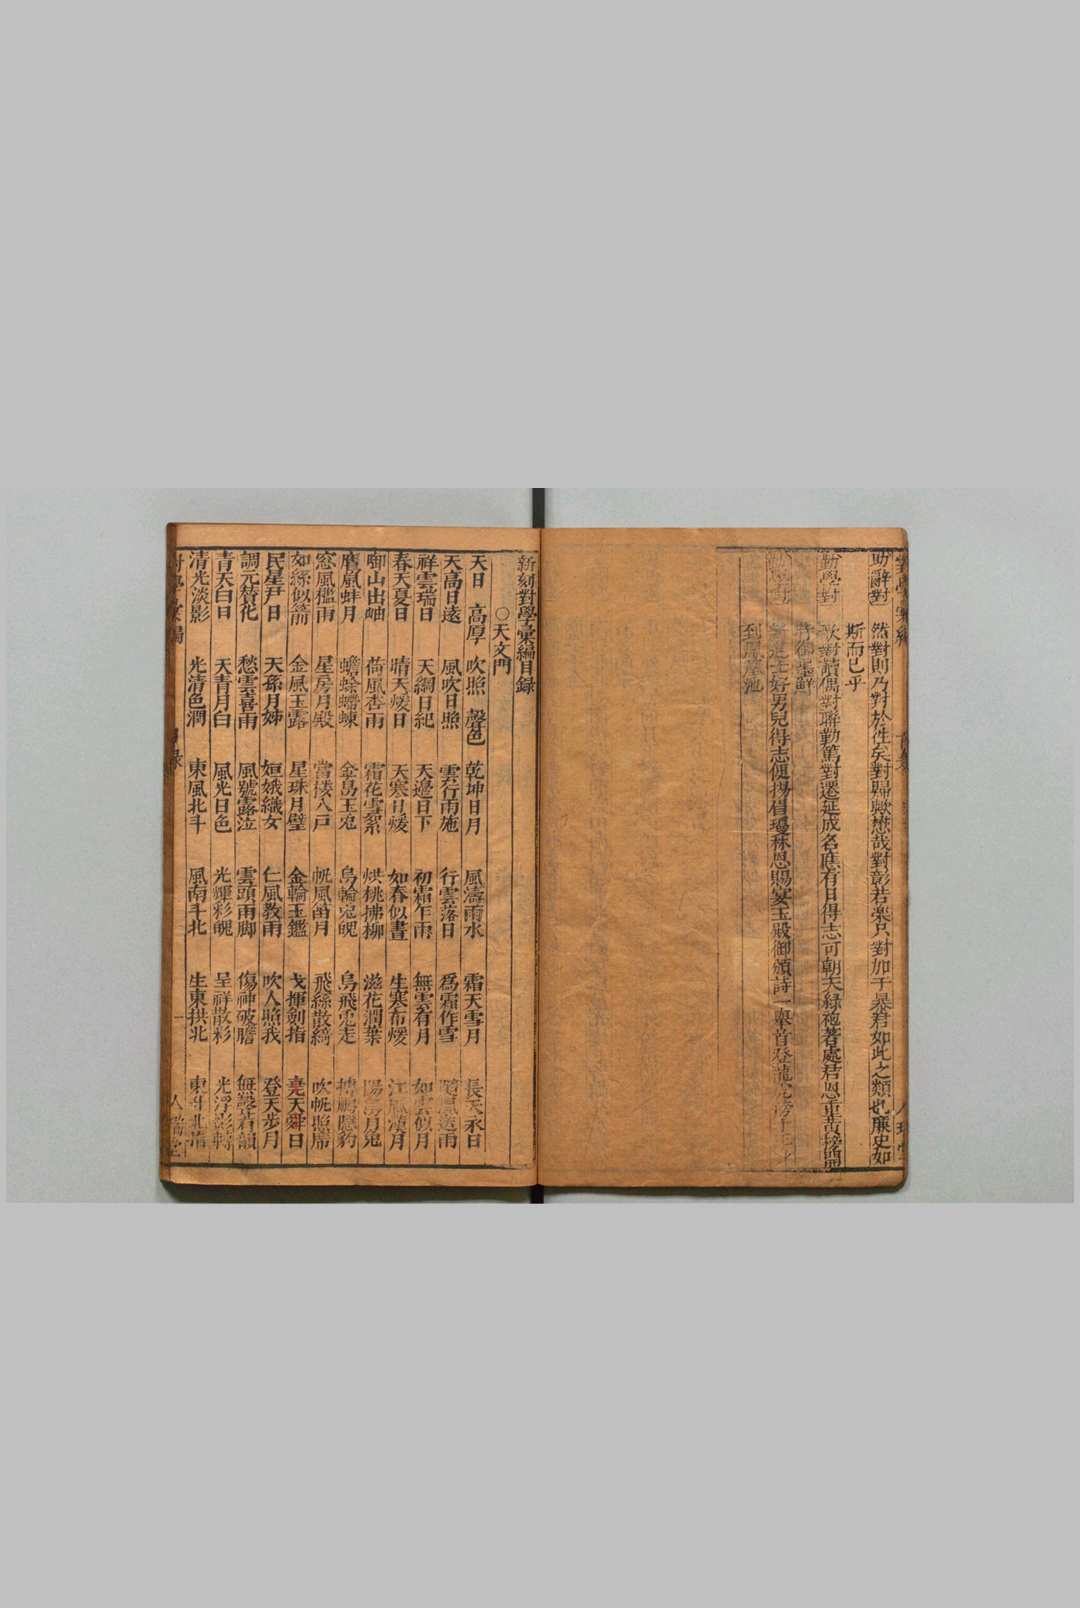 助辭對　然對則乃對於性矣對歸歟懋哉對彰若樂只對加于暴君如此之類也廉史如
斯而已乎
勸學對　歌對讀偶對聯勤篤對遷延成名應有日得志可朝天綠袍著處君恩重黃榜開
時御墨鮮
進士好男兒得志便揚眉瓊林恩賜宴玉殿御頒詩一舉首登龍虎榜十年身
到鳳凰池
新刻對學彙編目錄
○天文門
天日　高厚　吹照　聲色　乾坤日月　風濤雨水　霜天雪月　長天永日
天高日遠　風吹日照　雲行雨施　行雲落日　為霜作雪
祥雲瑞日　天綱日紀　天邊日下　初霜乍雨　無雲有月　如雲似月
春天夏日　晴天煖日　天寒日煖　如春似晝　生寒布煖　江風漢月
啣山出岫　荷風杏雨　霜花雪絮　烘桃拂柳　滋花潤葉
鷹嵐蚌月　蟾蜍螮蝀　金烏玉兔　烏輪兔魄　烏飛兔走　摶鵬隱豹
窓風檻雨　星房月殿　當樓入戶　帆風笛月　飛絲散綺　吹帆照席
如絲似箭　金風玉露　星珠月璧　金輪玉鑑　戈揮劍指　堯天舜日
民星尹日　天孫月姊　姮娥織女　仁風教雨　吹人照我　登天步月
調元替化　愁雲喜雨　風號露泣　雲頭雨脚　傷神破膽　無聲有韻
青天白日　天青月白　風光日色　光輝彩魄　呈祥散彩　光浮影轉
清光淡影　光清色潤　東風北斗　風南斗北　生東拱北　東升北指
對學彙編　目錄　一　人瑞堂